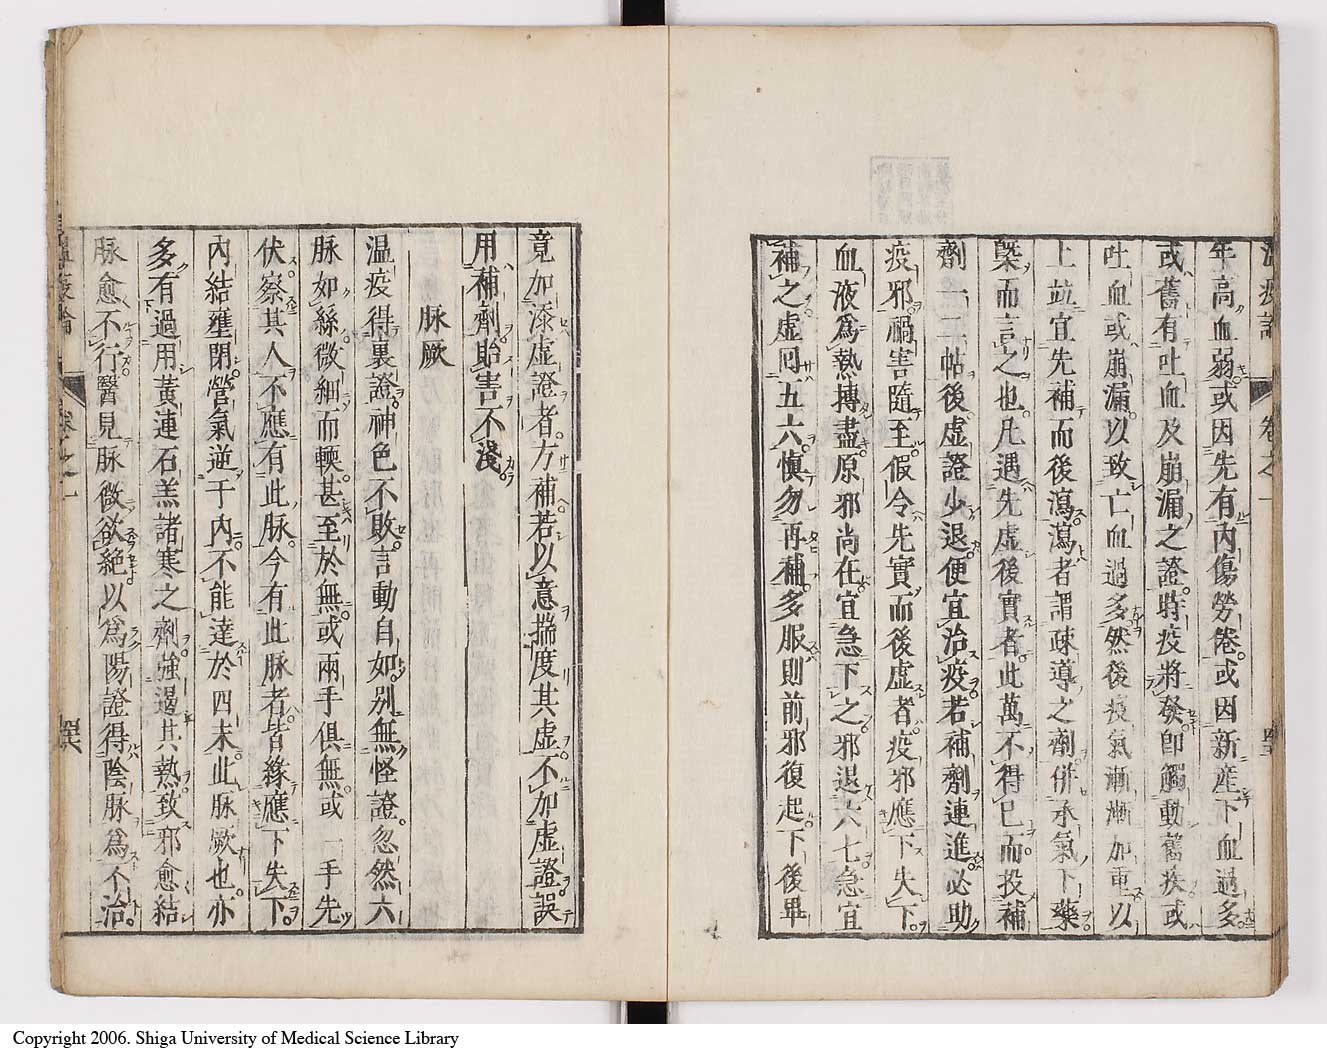 年高血弱或因先有內傷勞倦或因新産下血過多
或舊有吐血及崩漏之證時疫將發卽觸動舊疾或
吐血或崩漏以致亡血過多然後疫氣漸漸加重以
上竝宜先補而後瀉瀉者謂疎導之劑併承氣下藥
槩而言之也凡遇先虛後實者此萬不得已而投補
劑一二帖後虛證少退便宜治疫若補劑連進必助
疫邪禍害隨至假令先實而後虛者疫邪應下失下
血液爲熱搏盡原邪尚在宜急下之邪退六七急宜
補之虛囘五六愼勿再補多服則前邪復起下後畢
竟加添虛證者方補若以意揣度其虛不加虛證誤
用補劑貽害不淺
脉厥
温疫得裏證神色不敗言動自如別無怪證忽然六
脉如絲微細而軟甚至於無或兩手俱無或一手先
伏察其人不應有此脉今有此脉者皆緣應下失下
內結壅閉營氣逆于內不能達於四末此脉厥也亦
多有過用黃連石羔諸寒之劑強遏其熱致邪愈結
脉愈不行醫見脉微欲絕以爲陽證得陰脉爲不治
Copyright 2006. Shiga University of Medical Science Library